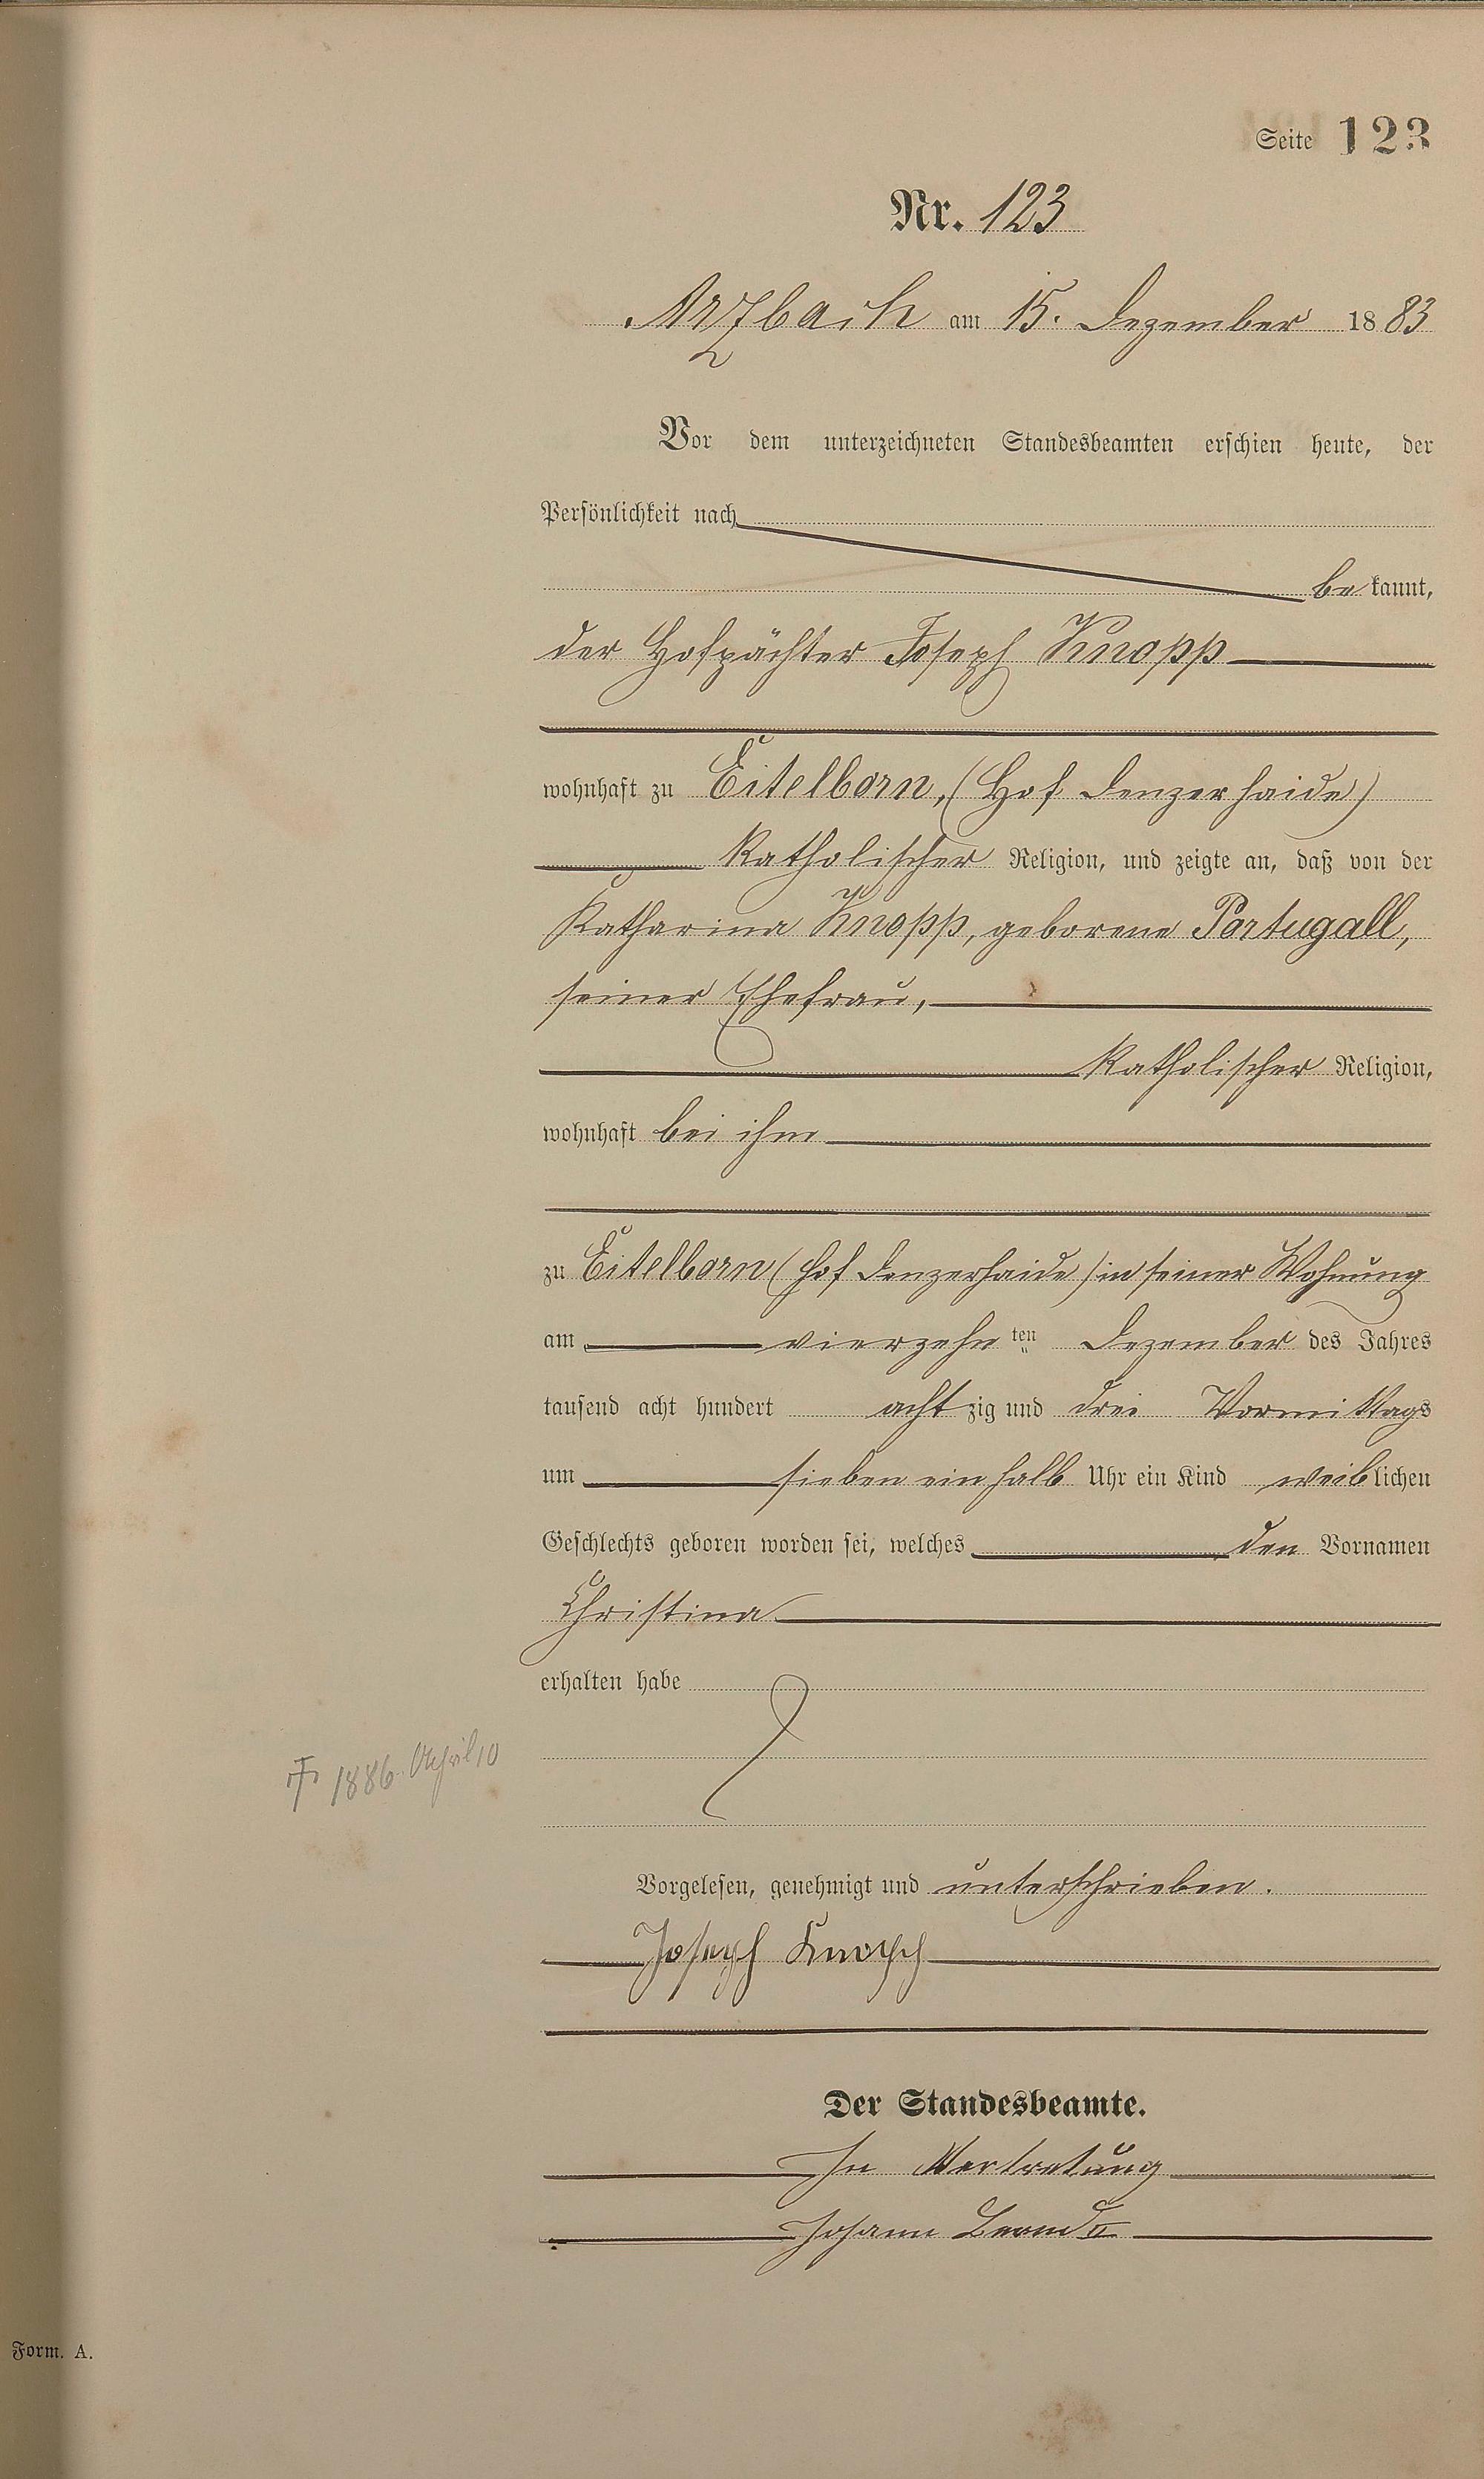 Seite 123
Nr. 123
Arzbach am 15. Dezember 1883
Vor dem unterzeichneten Standesbeamten erschien heute, der
Persönlichkeit nach
bekannt,
der Hofpächter Joseph Knopp
wohnhaft zu Eitelborn, (Hof Denzerhaide)
katholischer Religion, und zeigte an, daß von der
Katharina Knopp, geborene Portugall,
seiner Ehefrau,
katholischer Religion,
wohnhaft bei ihm
zu Eitelborn (Hof Denzerhaide) in seiner Wohnung
am vierzehnten Dezember des Jahres
tausend acht hundert achtzig und drei Vormittags
um sieben ein halb Uhr ein Kind weiblichen
Geschlechts geboren worden sei, welches den Vornamen
Christina
erhalten habe
† 1886. April 10
Vorgelesen, genehmigt und unterschrieben.
Joseph Knopp
Der Standesbeamte.
In Vertretung
Johann II
Form. A.